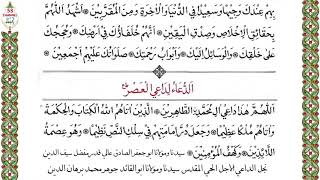 بِهِمْ عِنْدَكَ وَجِيهًا وَسَعِيْدًا فِي الدُّنْيَا وَالْآخِرَةِ وَمِنَ الْمُقَرَّبِيْنَ * اَشْهَدُ اَنَّهُمْ
بِحَقَائِقِ الْاِخْلَاصِ وَصِدْقِ الْيَقِيْنِ * وَاَشْهَدُ اَنَّهُمْ خُلَفَاؤُكَ فِيْ اَرْضِكَ * وَحُجَجُكَ
عَلٰى خَلْقِكَ * وَالْوَسَائِلُ اِلَيْكَ * وَاَبْوَابُ رَحْمَتِكَ * صَلَوَاتُكَ عَلَيْهِمْ اَجْمَعِيْنَ *
اَلدُّعَاءُ لِدَاعِي الْعَصْرِ
اَللّٰهُمَّ هٰذَا دَاعِيْ اٰلِ مُحَمَّدِ الطَّاهِرِيْنَ * الَّذِيْنَ اٰتَاهُمُ اللهُ الْكِتَابَ وَالْحِكْمَةَ
وَاٰتَاهُمْ مُلْكًا عَظِيْمًا * وَجَعَلَ دُرَّ اِمَامَتِهِمْ فِيْ سِلْكِ النَّصِّ نَظِيْمًا * وَهُوَ عِصْمَةُ
اللَّائِذِيْنَ * وَكَهْفُ الْمُؤْمِنِيْنَ * سيدنا ومولانا ابو جعفر الصادق عالي قدر مفضل سيف الدين
نجل الداعي الاجل الحي المقدس سيدنا ومولانا ابو القائد جوهر محمد برهان الدين